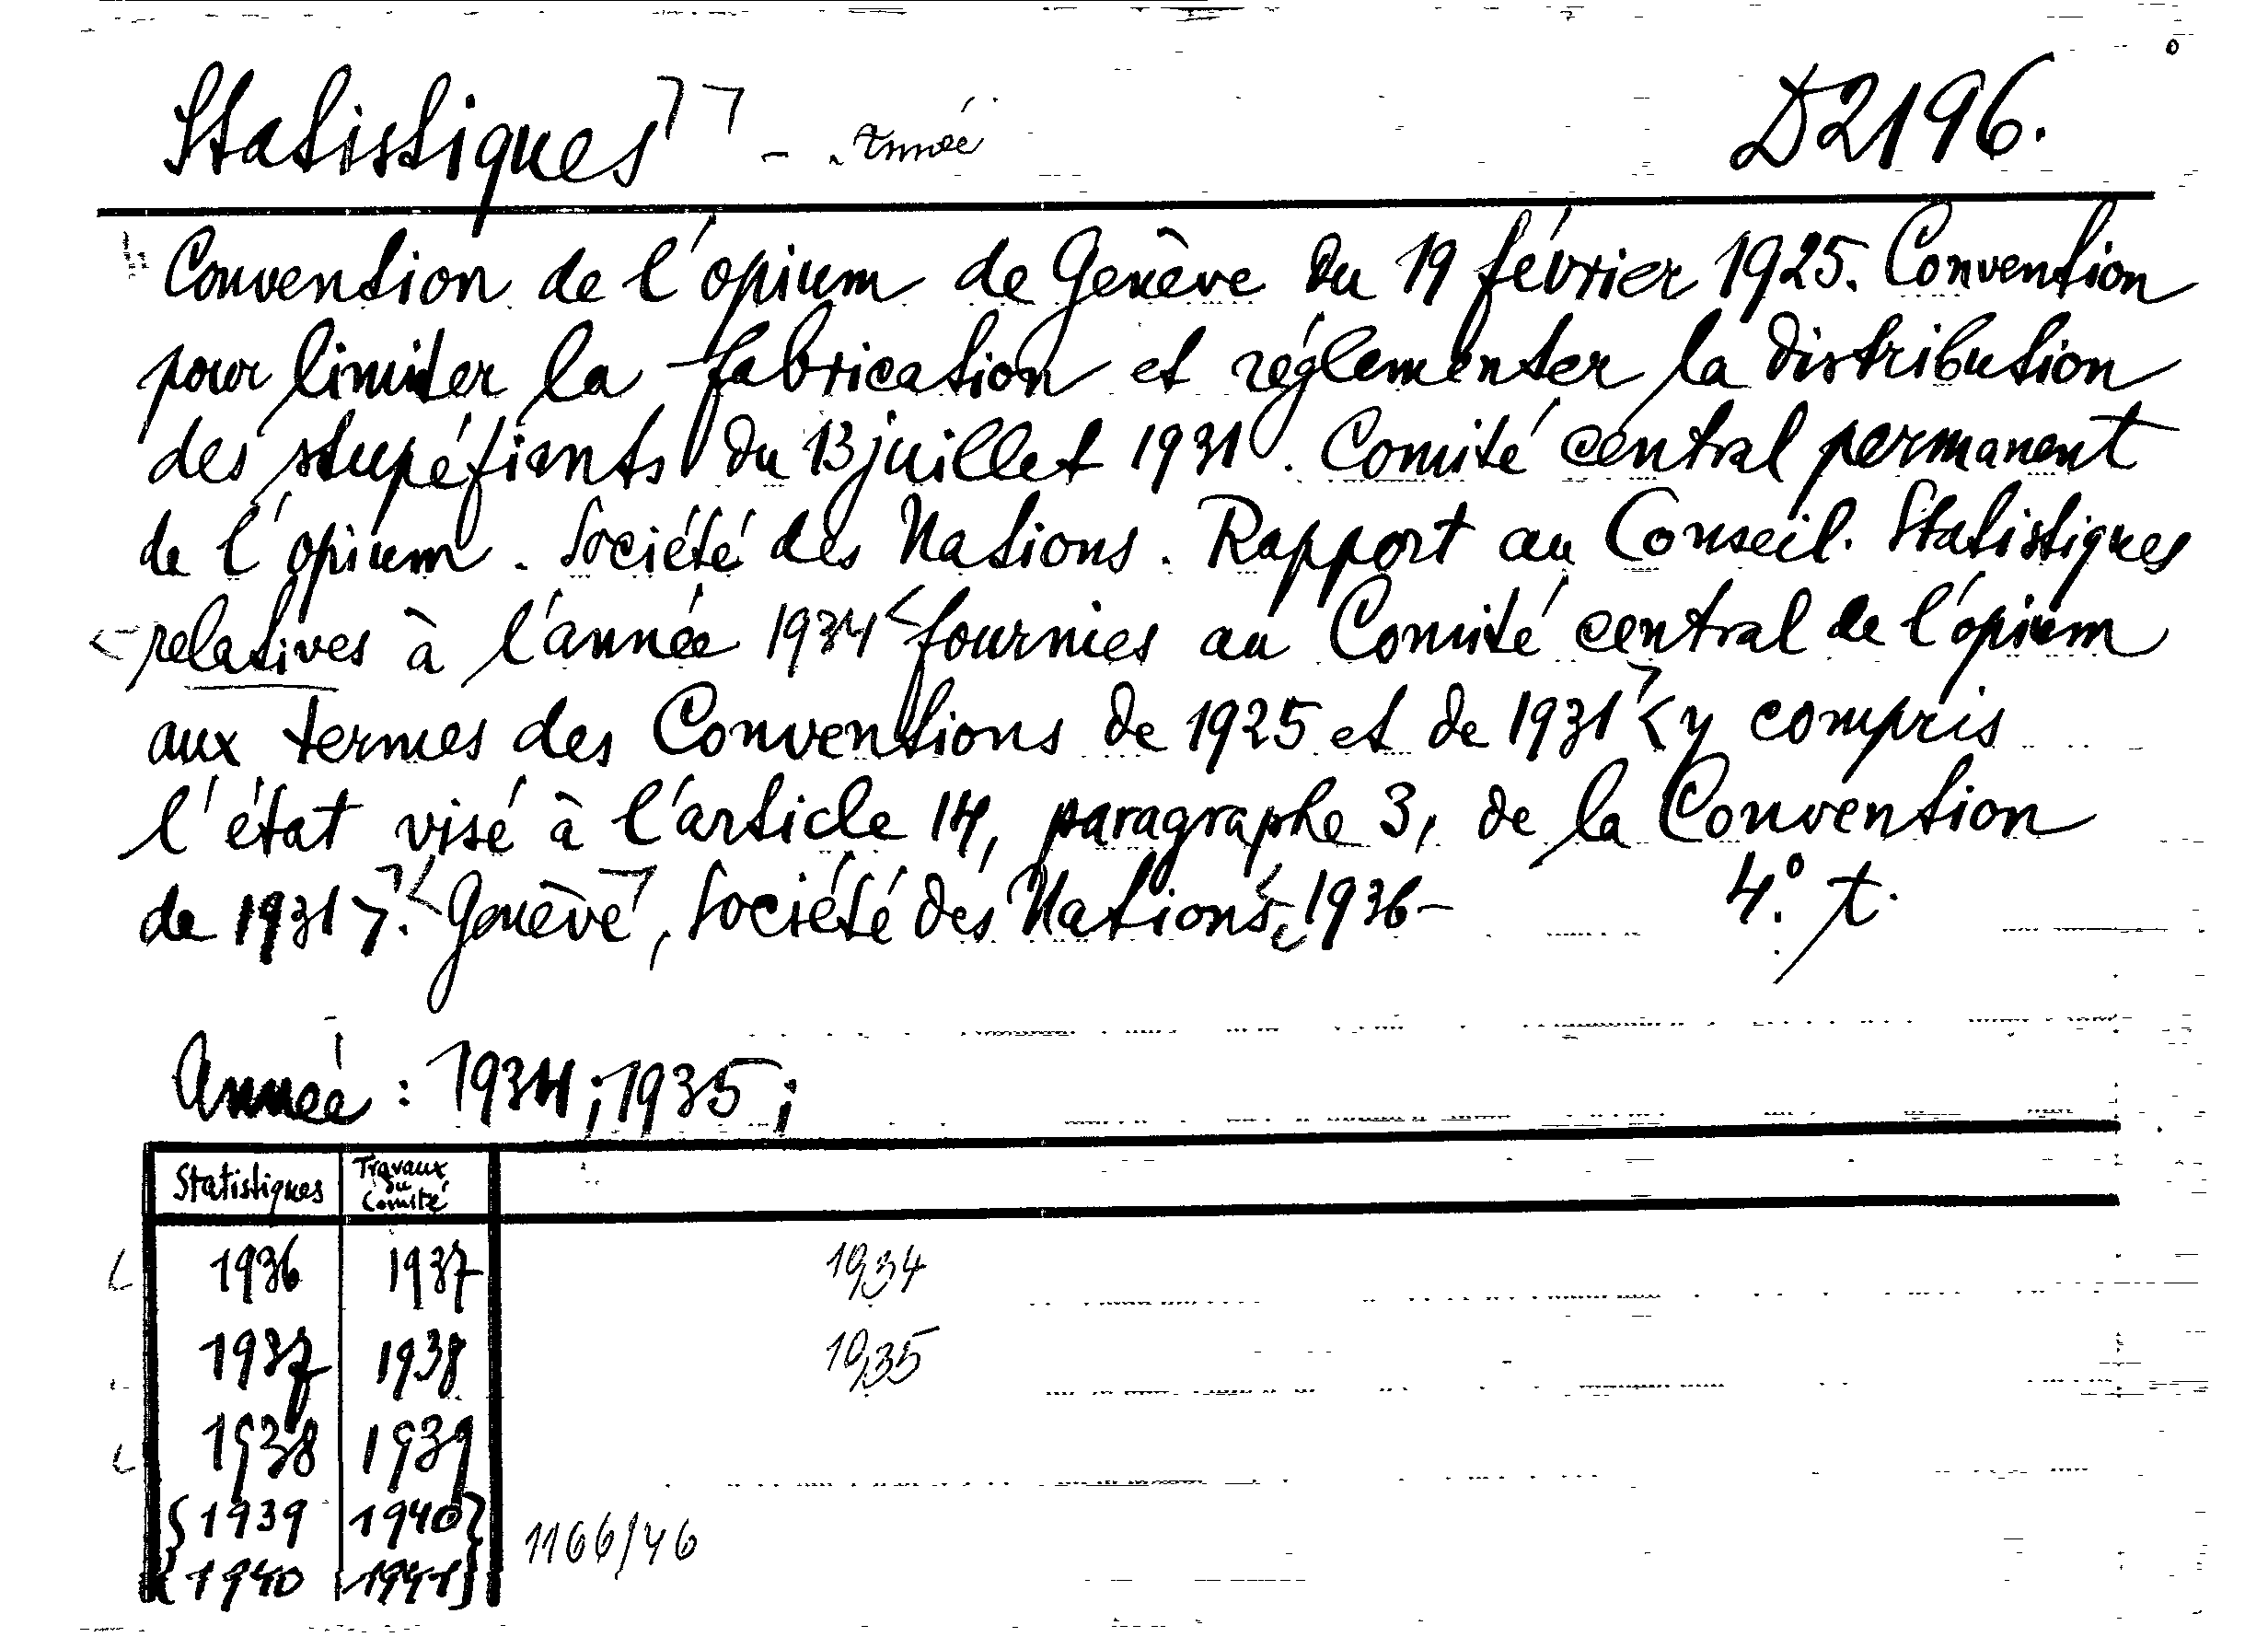 Statistiques - Année D2196.
Convention de l'opium de Genève du 19 février 1925. Convention
pour limiter la fabrication et réglementer la distribution
des stupéfiants du 13 juillet 1931. Comité central permanent
de l'opium. Société des Nations. Rapport au Conseil. Statistiques
relatives à l'année 1934 fournies au Comité central de l'opium
aux termes des Conventions de 1925 et de 1931 <y compris
l'état visé à l'article 14, paragraphe 3, de la Convention
de 1931>. Genève, Société des Nations, 1936- 4.º t.
Année : 1934 ; 1935 ;
Statistiques Travaux du Comité
1936 1937 1934
1937 1938 1935
1938 1939
{1939 1940}
{1940 1941} 1166/46